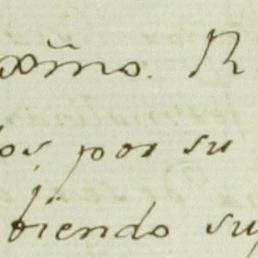 xmo. R
os por su
biendo su